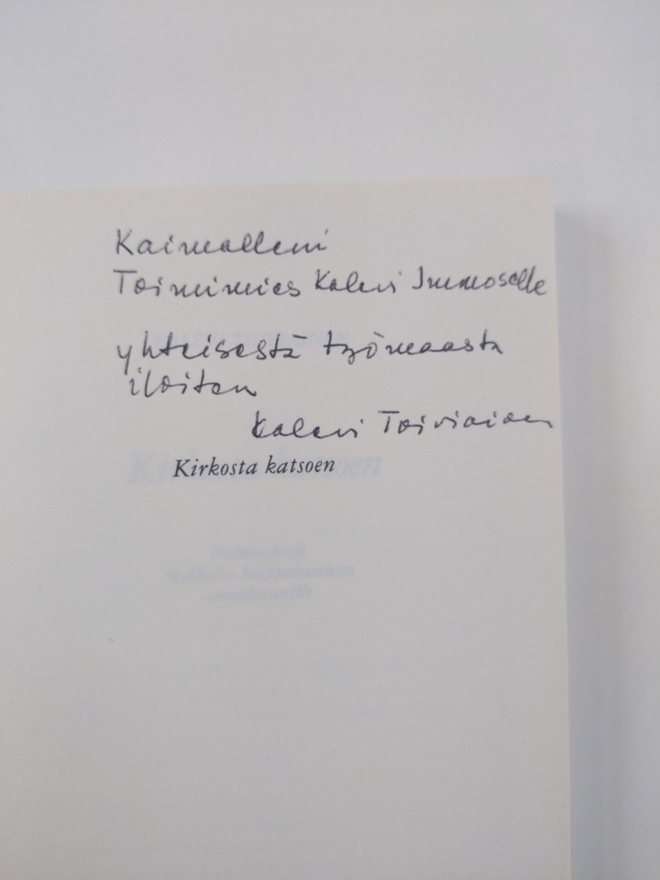 Kaimalleni
Toimimies Kalevi Immoselle
yhteisestä työmaasta
iloiten
Kalevi Toiviainen
Kirkosta katsoen